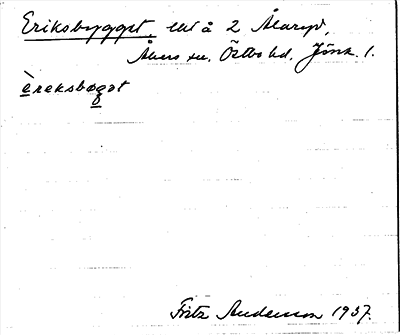 Eriksbygget, lht å 2 Ålaryd,
Åkers sn, Östbo hd, Jönk. l.
èreksbøgət
Fritz Andersson 1937.